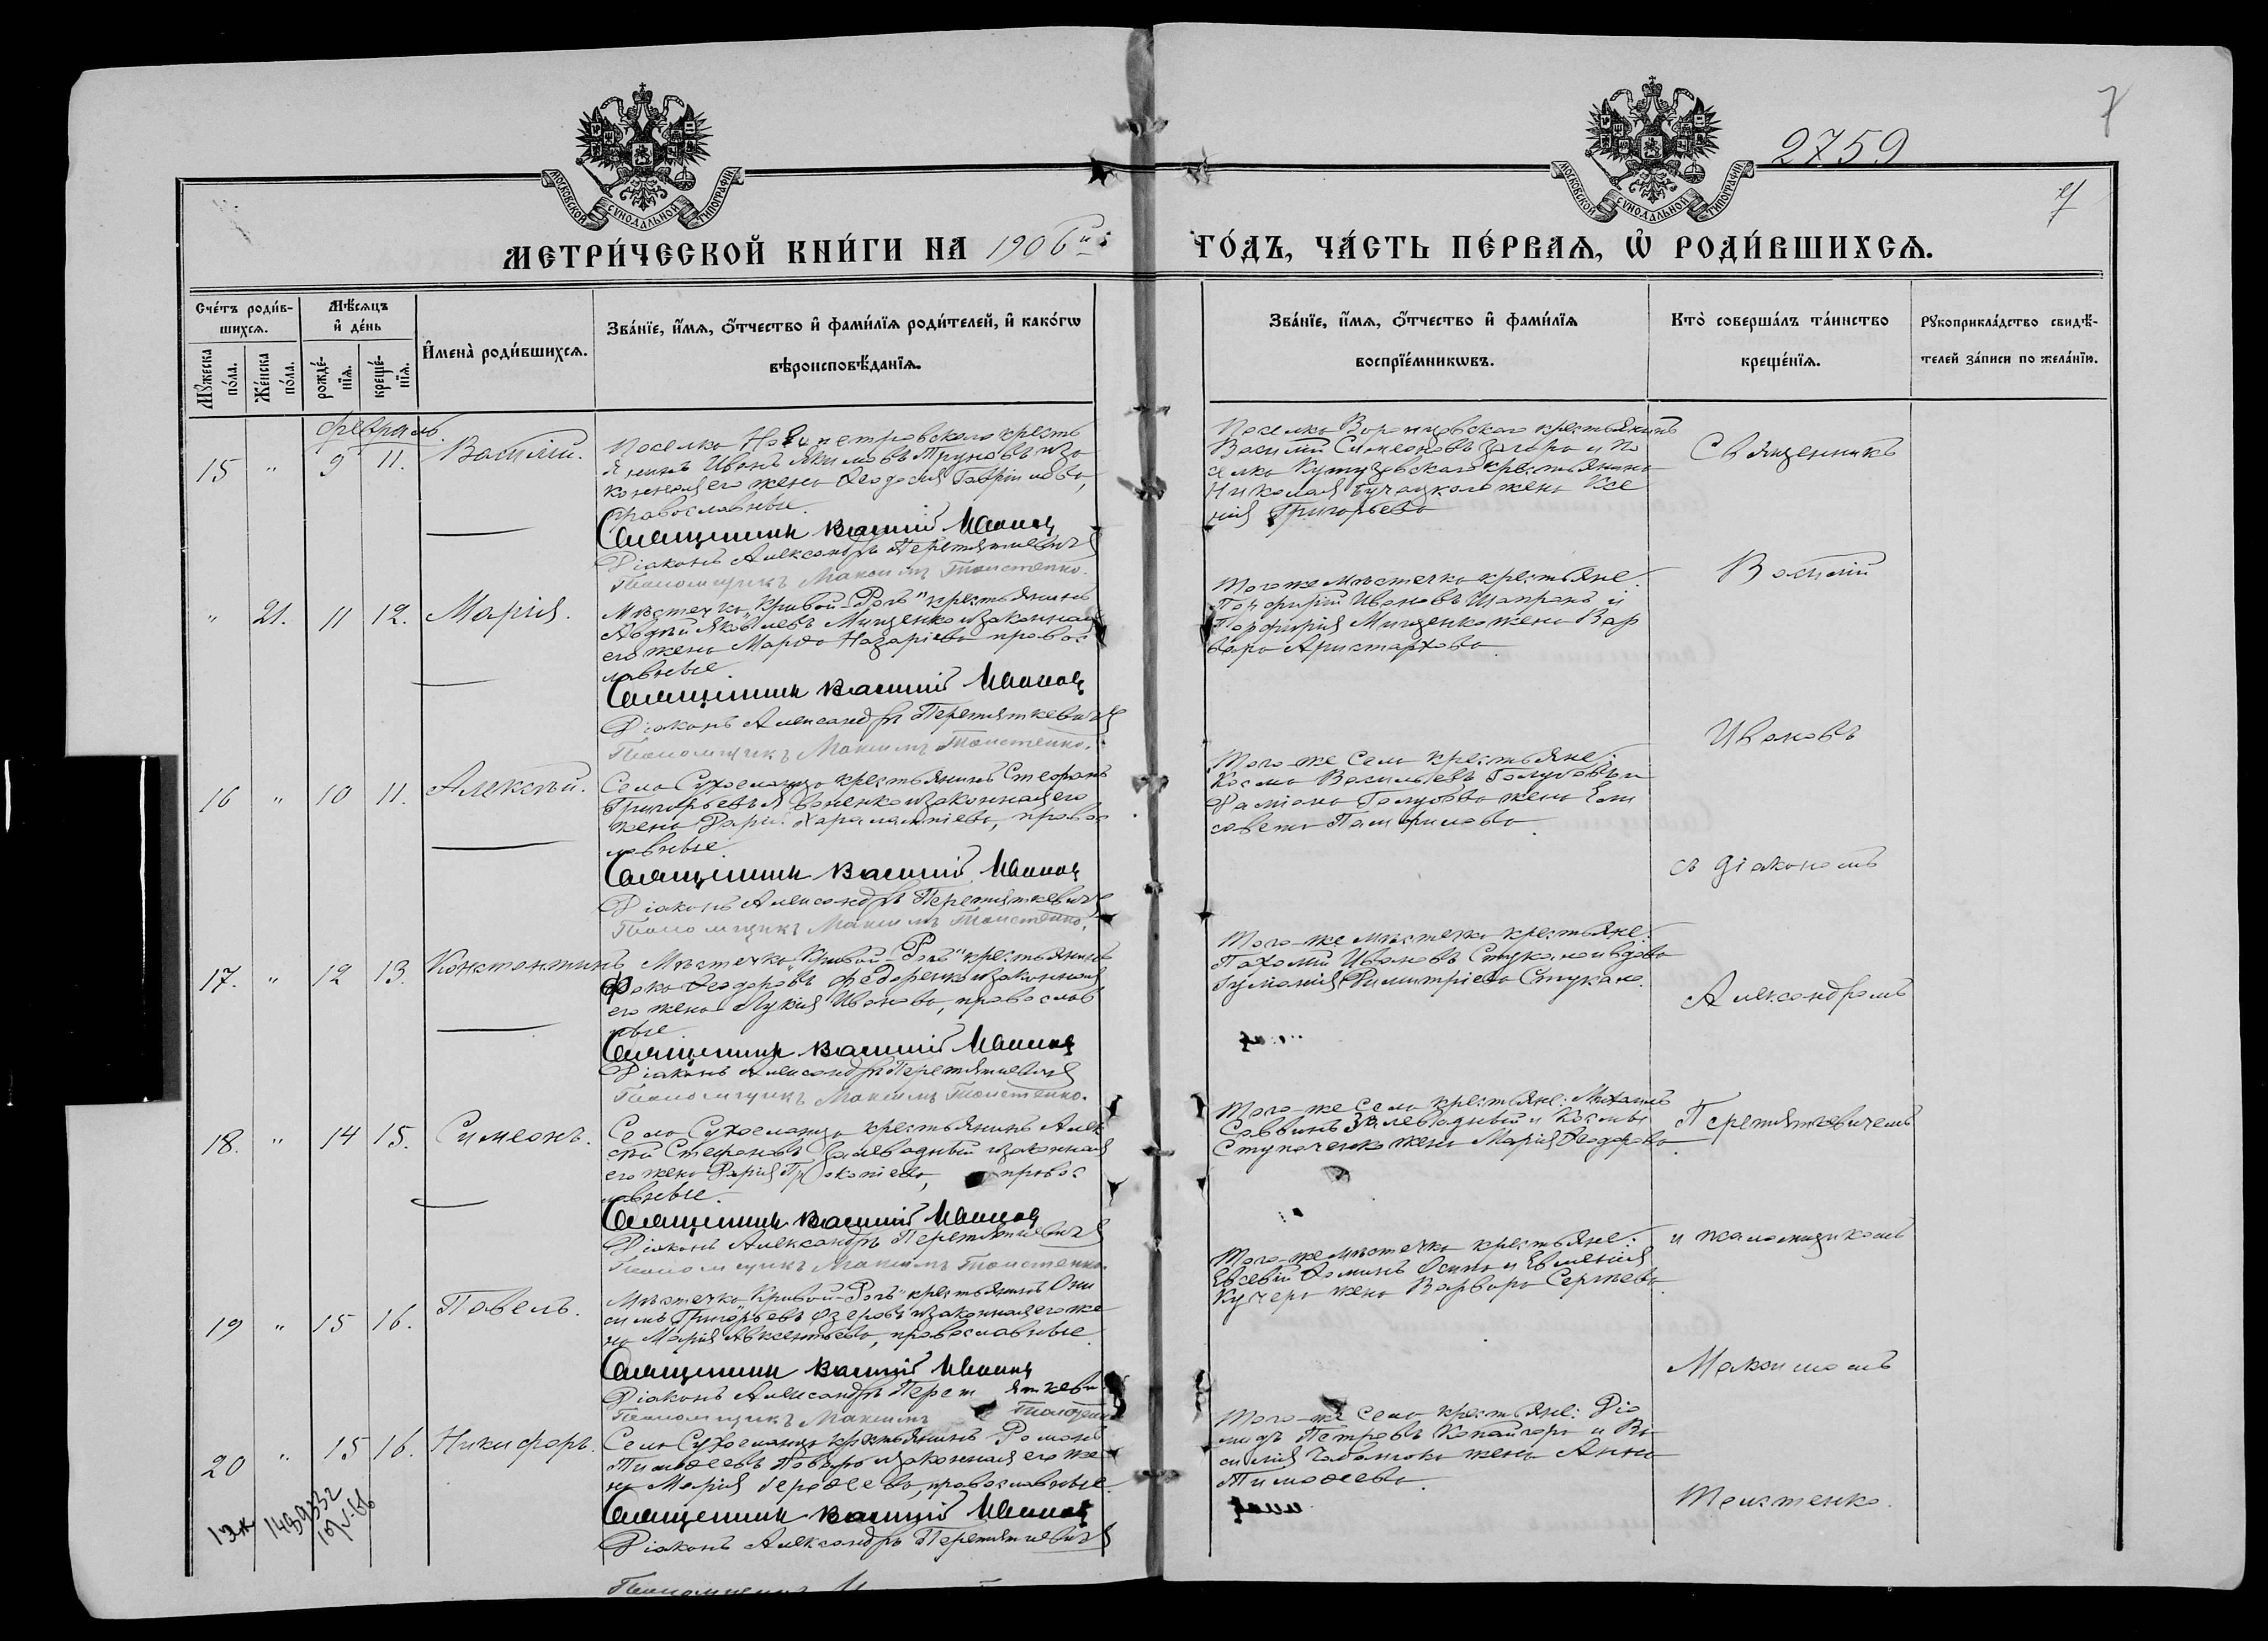 2759
7
7
МОСКОВСКОЙ СѴНОДАЛЬНОЙ ТИПОГРАФІИ
МОСКОВСКОЙ СѴНОДАЛЬНОЙ ТИПОГРАФІИ
МЕТРИ́ЧЕСКОЙ КНИ́ГИ НА 1906й
ГО́ДЪ, ЧА́СТЬ ПЕ́РВАѦ, Ѡ҆ РОДИ́ВШИХСѦ.
Сче́тъ роди́вшихсѧ.
Мꙋжеска по́ла.
Же́нска по́ла.
Мѣ́сѧцъ и҆ де́нь
рожде́нїѧ.
креще́нїѧ.
И҆мена̀ роди́вшихсѧ.
Зва́нїе, и҆́мѧ, ѻ҆́тчество и҆ фами́лїѧ роди́телей, и҆ како́гѡ
вѣроисповѣ́данїѧ.
Зва́нїе, и҆́мѧ, ѻ҆́тчество и҆ фами́лїѧ
воспрїе́мникѡвъ.
Кто̀ соверша́лъ та́инство
креще́нїѧ.
Рꙋкоприкла́дство свидѣ́телей за́писи по жела́нїю.
Февраль.
15 " 9 11. Василій.
Поселка Ново петровскаго кресть
янинъ Иванъ Якимовъ Труновъ и за
конная его жена Феодосія Гавріилова,
православные.
Священникъ Василій Ивановъ
Діаконъ Александръ Перетяткевичъ
Псаломщикъ Максимъ Толстенко.
Поселка Воронцовскаго крестьянинъ
Василій Симеоновъ Загора и по
селка Кутузовскаго крестьянина
Николая жена Ксе
нія Григорьева
" 21. 11 12. Марія.
Мѣстечка "Кривой-Рогъ" крестьянинъ
Авдѣй Яковлевъ Мищенко и законная
его жена Марѳа Назаріева правос
лавные.
Священникъ Василій Ивановъ
Діаконъ Александръ Перетяткевичъ
Псаломщикъ Максимъ Толстенко.
Того же мѣстечка крестьяне:
Порфирій Ивановъ Шапранъ и
Порфирія Мищенко жена Вар
вара Аристархова.
16 " 10 11. Алексѣй.
Села Сухоелаща крестьянинъ Стефанъ
Григорьевъ и законная его
жена Дарія Харалампіева, правос
лавные.
Священникъ Василій Ивановъ
Діаконъ Александръ Перетяткевичъ
Псаломщикъ Максимъ Толстенко.
Того-же села крестьяне:
Косма Васильевъ Голубовъ и
Даміана Голубова жена Ели
савета Памфилова.
17. " 12 13. Константинъ
Мѣстечка "Кривой-Рогъ" крестьянинъ
Фока Феодоровъ Федоренко и законная
его жена Лукія Иванова, православ
ные
Священникъ Василій Ивановъ
Діаконъ Александръ Перетяткевичъ
Псаломщикъ Максимъ Толстенко.
Того-же мѣстечка крестьяне:
Пахомій Ивановъ Стукало и вдова
Димитріева Стукало.
18. " 14 15. Симеонъ.
Села Сухоелаща крестьянинъ Алек
сѣй Стефановъ Залевадный и законная
его жена Дарія Прокопіева, правос
лавные.
Священникъ Василій Ивановъ
Діаконъ Александръ Перетяткевичъ
Псаломщикъ Максимъ Толстенко.
Того-же села крестьяне: Михаилъ
Саввинъ Залевадный и Космы
Ступаченко жена Марія Феодорова.
19 " 15 16. Павелъ.
Мѣстечка "Кривой-Рогъ" крестьянинъ Они
симъ Григорьевъ Озеровъ и законная его же
на Марія Авксентьева, православные
Священникъ Василій Ивановъ
Діаконъ Александръ Перетяткеви
Псаломщикъ Максимъ
Того-же мѣстечка крестьяне:
Евсевій Ѳоминъ Осипа и Евменія
Кучера жена Варвара Сергѣева.
20 " 15 16. Никифоръ.
Села Сухоелаща крестьянинъ Романъ
Тимоѳеевъ и законная его же
на Марія православные.
Священникъ Василій Ивановъ
Діаконъ Александръ Перетяткевичъ
Псаломщикъ
Того-же села крестьяне: Діо
мидъ Петровъ Копайгора и Ва
силія жена Анна
Тимоѳеева.
Священникъ
Василій
Ивановъ
съ діакономъ
Александромъ
Перетяткевичемъ
и псаломщикомъ
Максимомъ
Толстенко.